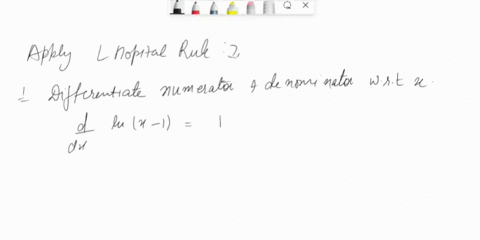 Apply L Hopital Rule :
1 Differentiate numerator & denominator w.r.t x.
d/dx ln (x-1) = 1